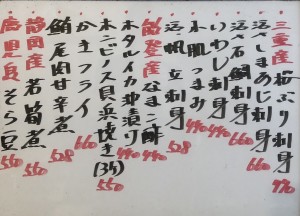 三重産 桜ぶり刺身 770
活〆しまあじ刺身 660
活〆石鯛刺身 660
いわし刺身 440
小肌つまみ 440
活帆立刺身 528
能登産 なまこ酢 440
ホタルイカ沖漬り 440
本ビノス貝浜焼き(3ケ) 550
かきフライ 660
鮪尾肉甘辛煮 528
静岡産 若筍煮 550
鹿児島 そら豆 550